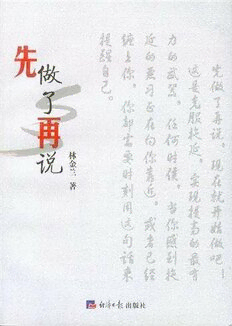 先做了再说
林金兰 著
先做了再说,现在就开始做吧!
这是克服拖延,实现提高的最有
力的武器。任何时候,当你感到拖
延的恶习正在向你靠近,或者已经
缠上你,你都需要时刻用这句话来
提醒自己。
经济日报出版社